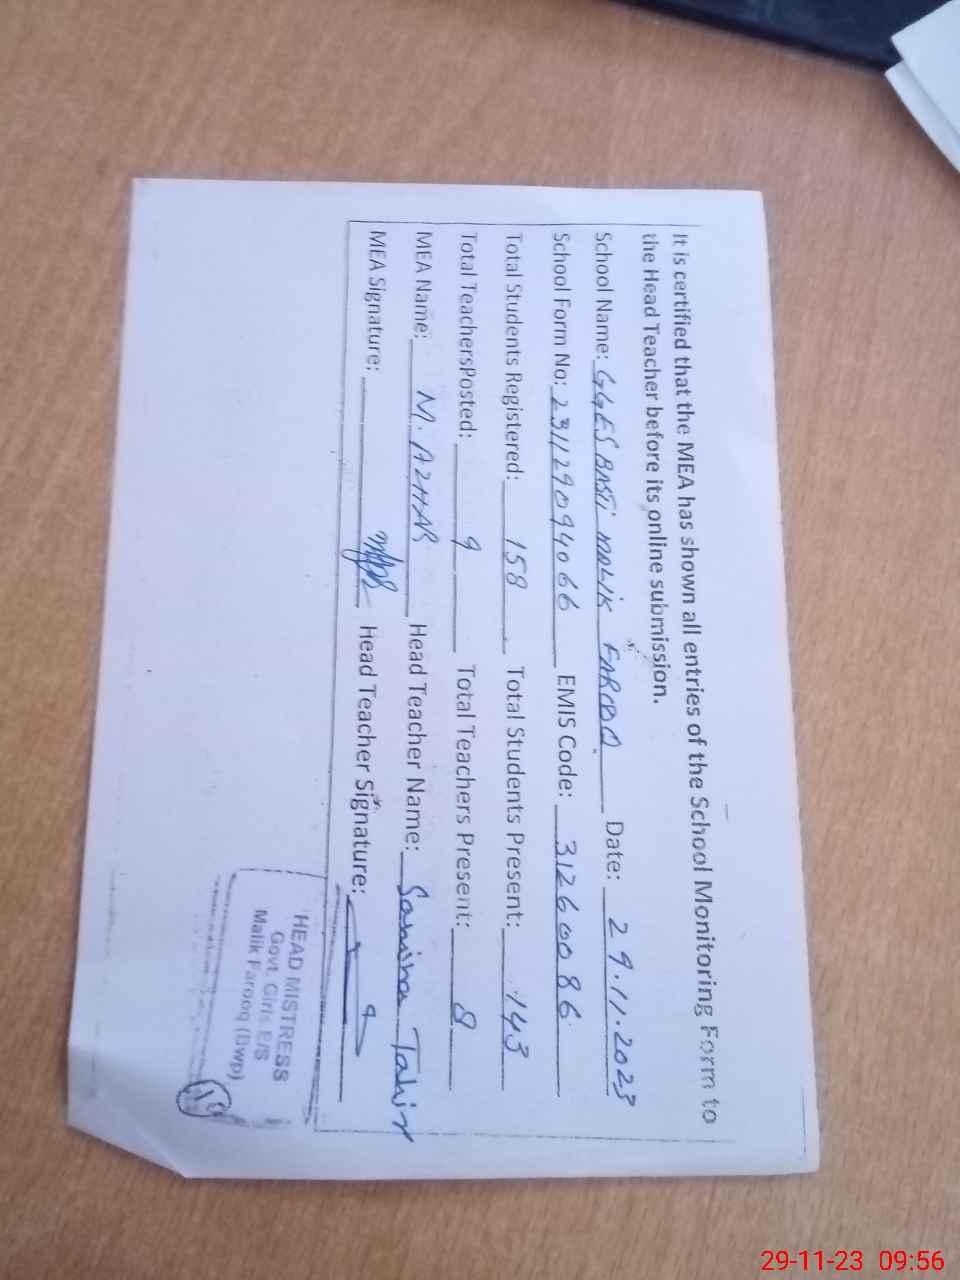 It is certified that the MEA has shown all entries of the School Monitoring Form to
the Head Teacher before its online submission.
School Name: GGES BASTI MALIK FAROOQ. Date: 29.11.2023
School Form No: 231129094066 EMIS Code: 31260086
Total Students Registered: 158 Total Students Present: 143
Total TeachersPosted: 9 Total Teachers Present: 8
MEA Name: M. AZHAR Head Teacher Name: Tahir
MEA Signature: Head Teacher Signature:
HEAD MISTRESS
Govt. Girls E/S
Malik Farooq (Bwp)
29-11-23 09:56